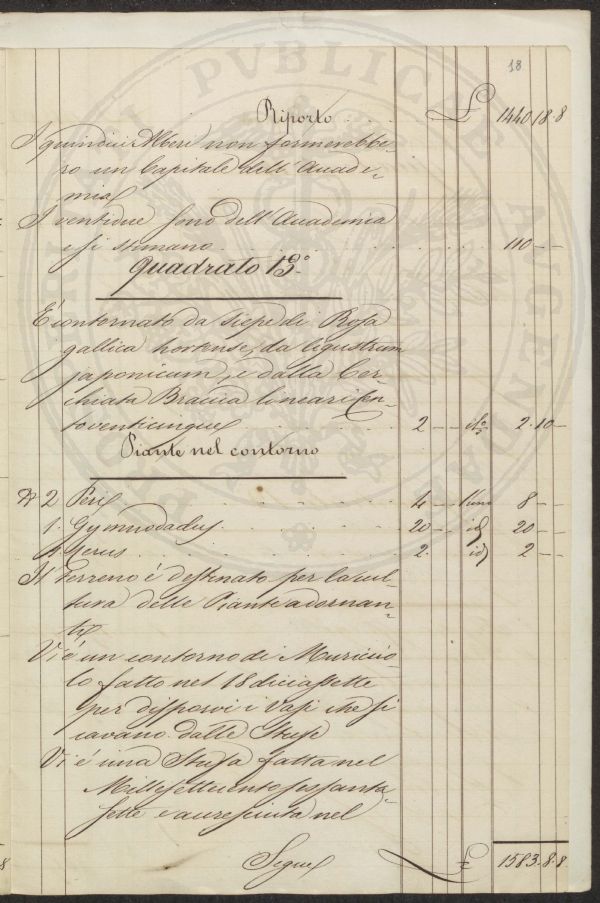 18
Riporto . . . £ 1440.18.8
I quindici Alberi non formerebbe-
ro un Capitale dell'Accade-
mia
I ventidue sono dell'Accademia
e si stimano . . . 110 — —
Quadrato 13.°
È contornato da siepe di Rosa
gallica hortense, da ligustrum
japonicum, e dalla Cer-
chiata Braccia lineari Cen-
toventicinque . . . 2 — — 2.10 —
Piante nel contorno
N° 2 Peri . . . 4 — — l'uno 8 — —
1. Gymnocladus . . . 20 — — id 20 — —
1. Morus . . . 2. — — id 2 — —
Il Terreno è destinato per la cul-
tura delle Piante adornan-
ti
Vi è un contorno di Muricciuo
lo fatto nel 18diciassette
per disporvi i vasi che si
cavano dalle Stufe
Vi è una Stufa fatta nel
Millesettecentosessanta-
sette e accresciuta nel
Segue £ 1583.8.8
PUBLICAE
AUGENDAE